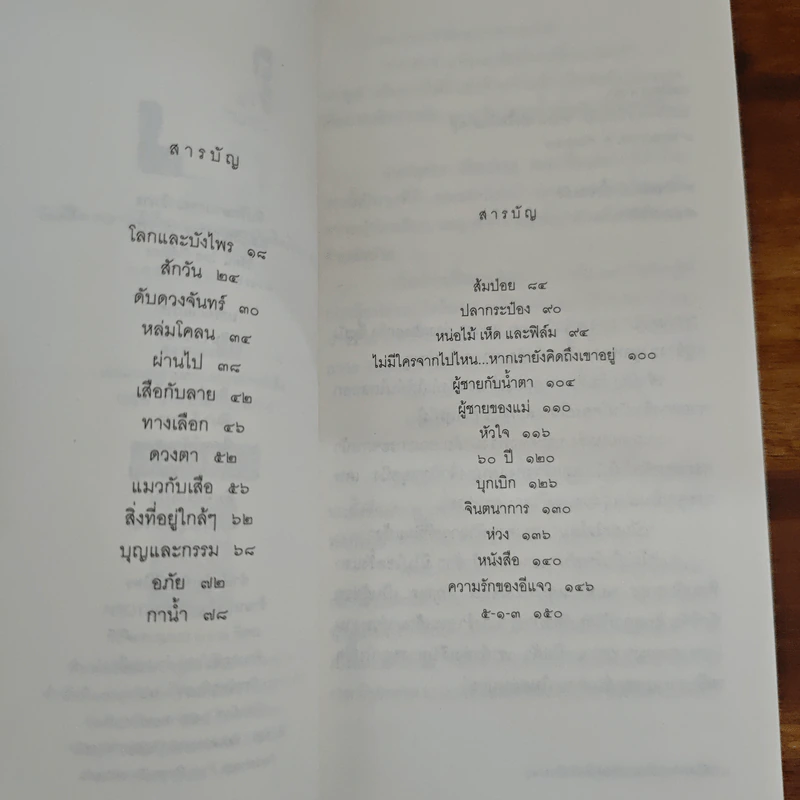 สารบัญ
โลกและบังไพร ๑๘
สักวัน ๒๔
ดับดวงจันทร์ ๓๐
หล่มโคลน ๓๔
ผ่านไป ๓๘
เสือกับลาย ๔๒
ทางเลือก ๔๖
ดวงตา ๕๒
แมวกับเสือ ๕๖
สิ่งที่อยู่ใกล้ๆ ๖๒
บุญและกรรม ๖๘
อภัย ๗๒
กาน้ำ ๗๘
สารบัญ
ส้มป่อย ๘๔
ปลากระป๋อง ๙๐
หน่อไม้ เห็ด และฟิล์ม ๙๔
ไม่มีใครจากไปไหน...หากเรายังคิดถึงเขาอยู่ ๑๐๐
ผู้ชายกับน้ำตา ๑๐๔
ผู้ชายของแม่ ๑๑๐
หัวใจ ๑๑๖
๖๐ ปี ๑๒๐
บุกเบิก ๑๒๖
จินตนาการ ๑๓๐
ห่วง ๑๓๖
หนังสือ ๑๔๐
ความรักของอีแจว ๑๔๖
๕-๑-๓ ๑๕๐